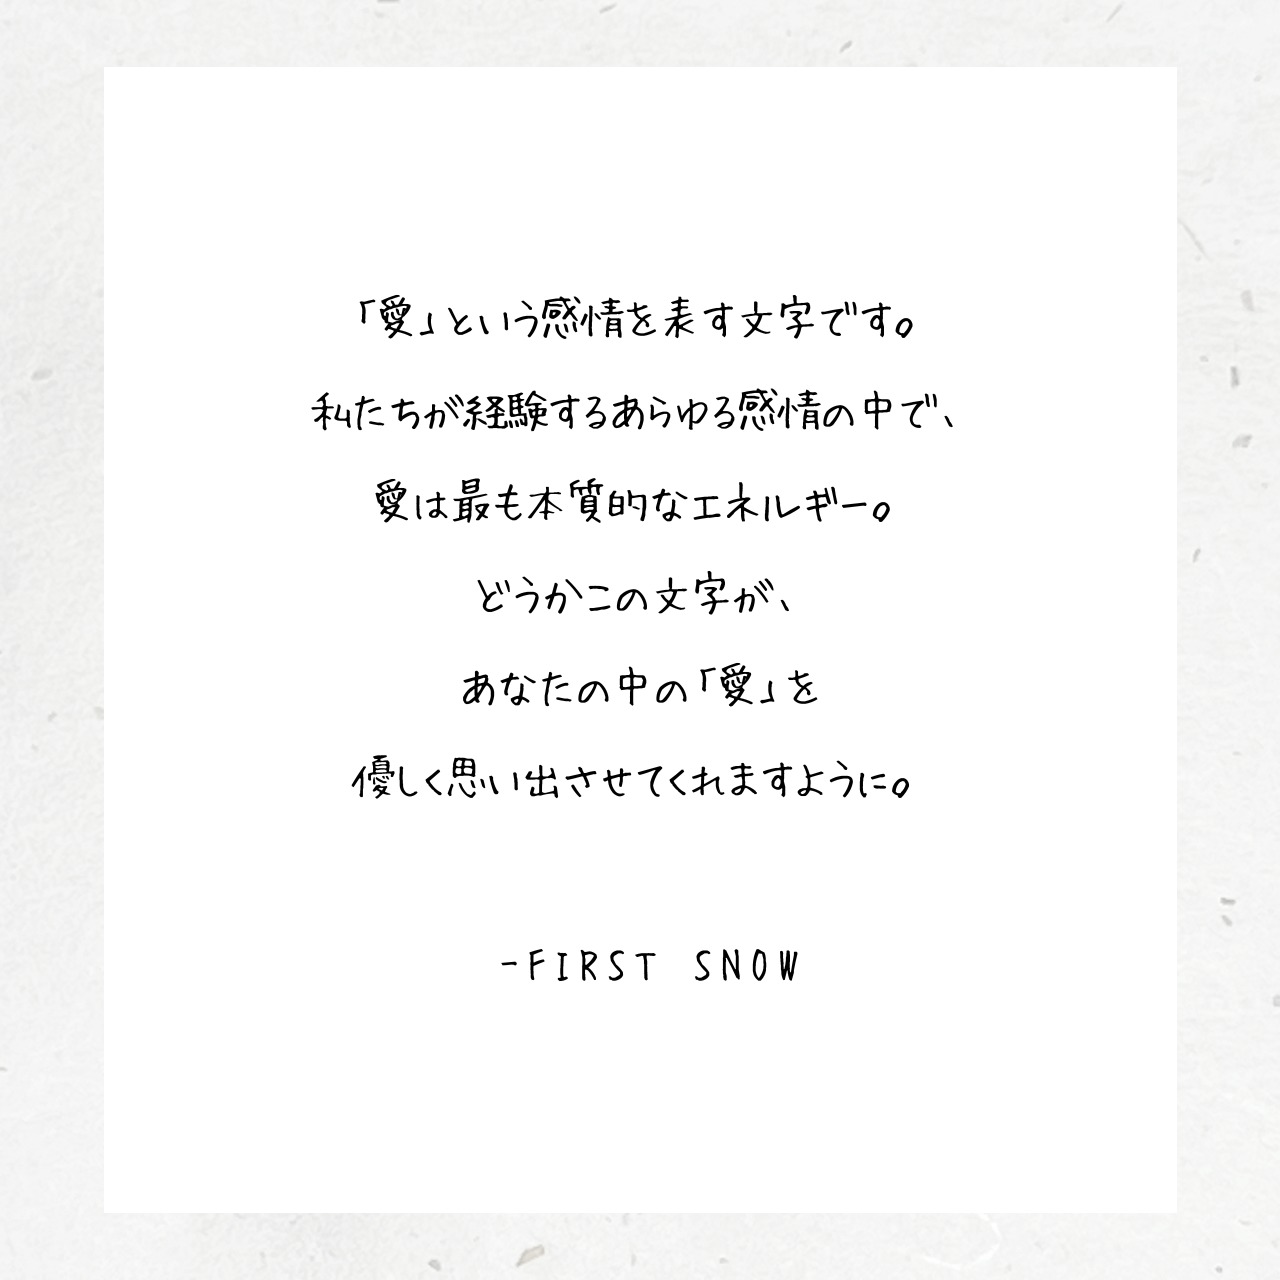 「愛」という感情を表す文字です。
私たちが経験するあらゆる感情の中で、
愛は最も本質的なエネルギー。
どうかこの文字が、
あなたの中の「愛」を
優しく思い出させてくれますように。
-FIRST SNOW